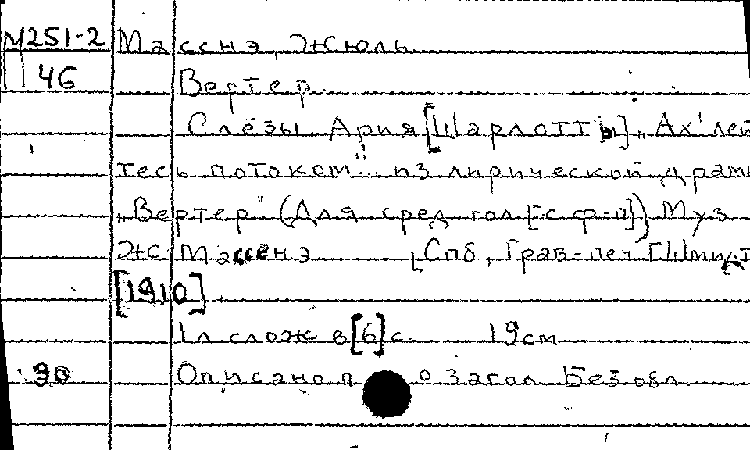 М251-2 Масснэ, Жюль
46 Вертер
Слёзы. Ария [Шарлотты] „Ах! лей
тесь потоком" из лирической драмы
„Вертер" (Для сред. гол. [с ф-п]) Муз.
Ж. Массенэ [Спб, Грав.-печ. [Шмидт
[1910].
1 л. слож. в [6] с. 19 см
30 Описано по загол. Без обл.